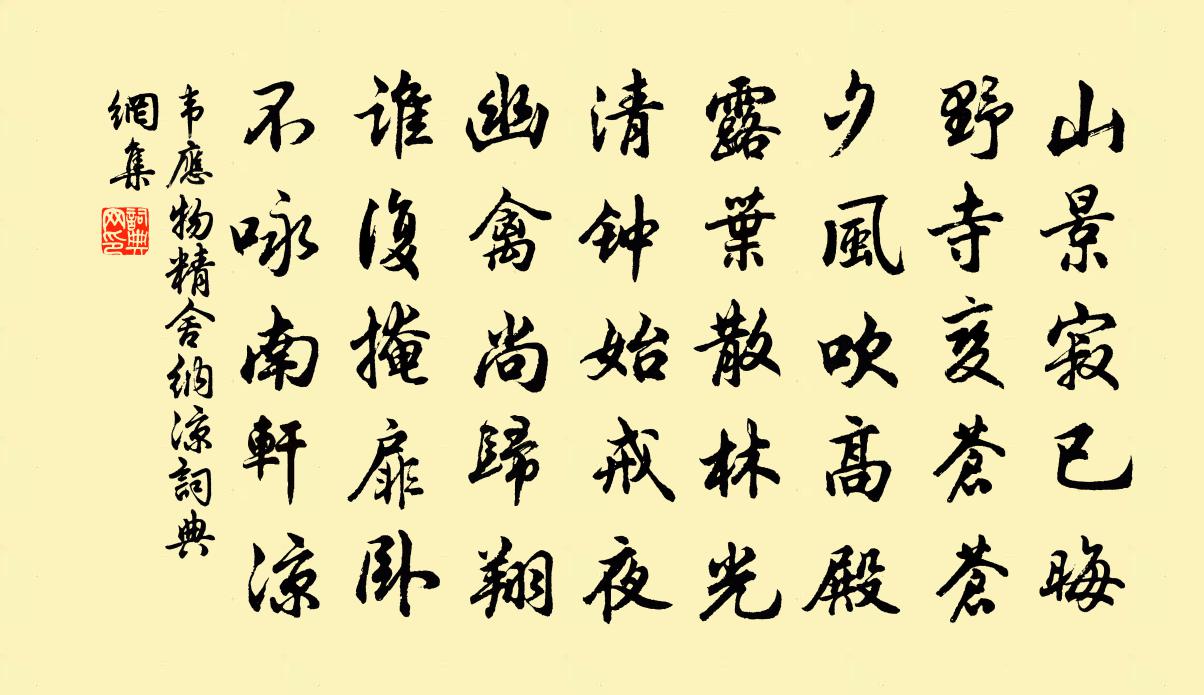 山景寂已晦
野寺变蒼蒼
夕風吹高殿
露葉散林光
清钟始戒夜
幽禽尚歸翔
谁復掩扉卧
不咏南軒涼
韦應物精舍纳凉詞典
網集
詞典网印